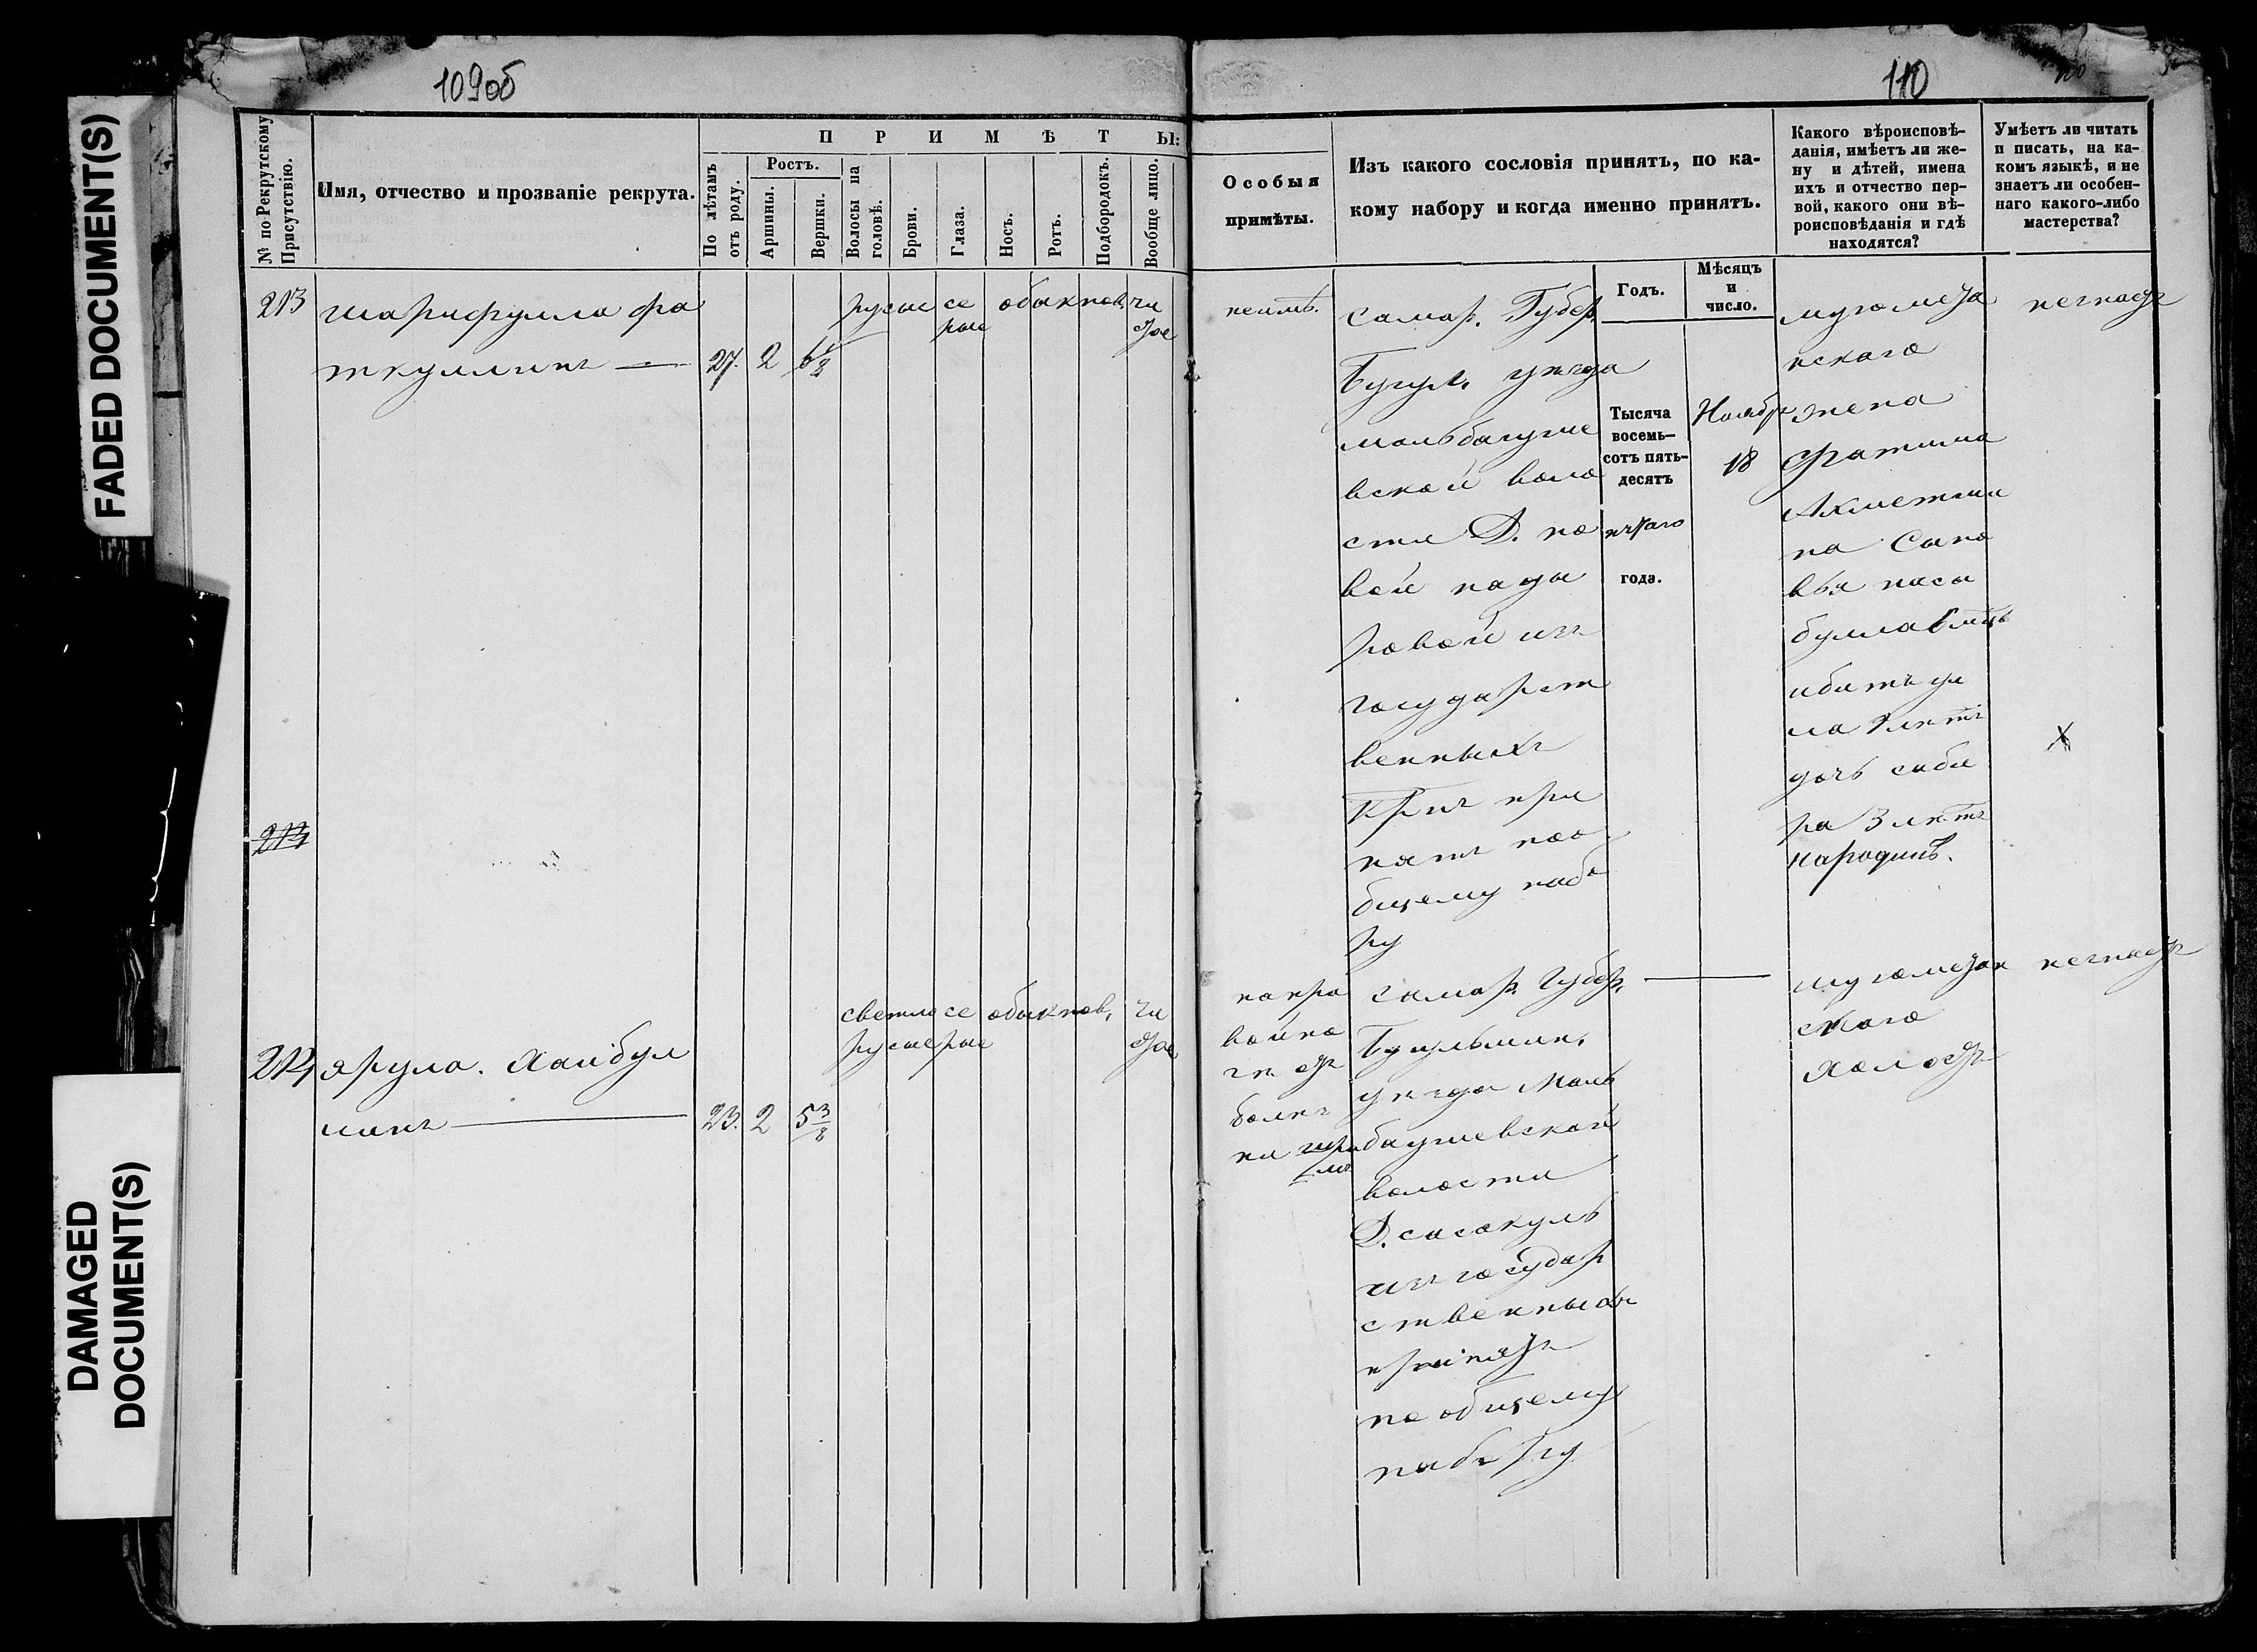 109об
110
FADED DOCUMENT(S)
DAMAGED
DOCUMENT(S)
№ по Рекрутскому
Присутствію.
Имя, отчество и прозваніе рекрута.
ПРИМѢТЫ:
По лѣтамъ
отъ роду.
Ростъ.
Аршины.
Вершки.
Волосы на
головѣ.
Брови.
Глаза.
Носъ.
Ротъ.
Подбородокъ.
Вообще лицо.
Особыя
примѣты.
Изъ какого сословія принятъ, по ка-
кому набору и когда именно принятъ.
Какого вѣроисповѣ-
данія, имѣетъ ли же-
ну и дѣтей, имена
ихъ и отчество пер-
вой, какого они вѣ-
роисповѣданія и гдѣ
находятся?
Умѣетъ ли читать
и писать, на ка-
комъ языкѣ, и не
знаетъ ли особен-
наго какого-либо
мастерства?
Годъ.
Мѣсяцъ
и
число.
213
шарифулла фа
ткуллинъ
27. 2
русые
се
рые
обыкнов.
чи
стое
неимѣ.
самар. Губер.
Бугул. уѣзда
мальбагуше
вской воло
сти Д. но
вой нады
ровой изъ
государст
венныхъ
Крнъ при
нятъ поо
бщему набо
ру
Тысяча
восемь-
сотъ пять-
десятъ
пятаго
года.
Ноябр
18
мугомеда
нскаго
жена
Фатима
Ахметши
на Сыно
вья наси
булла 6 мцъ
ибатъул
ла 1 лѣтъ
дочь саби
ра 3 лѣтъ
народинѣ.
незнаетъ
X
213
214
ярула. Хайбул
линъ
23. 2 5 3/8
светло
русые
се
рые
обыкнов.
чи
стое
на пра
вой но
гѣ отъ
болѣз
ни
самар. Губер.
Бугульмин.
уѣзда Маль
багушевской
волости
Д. сасакуль
изъ государ
ственныхъ
принятъ
по общему
набору
мугомедан
скаго
холостъ
незнаетъ